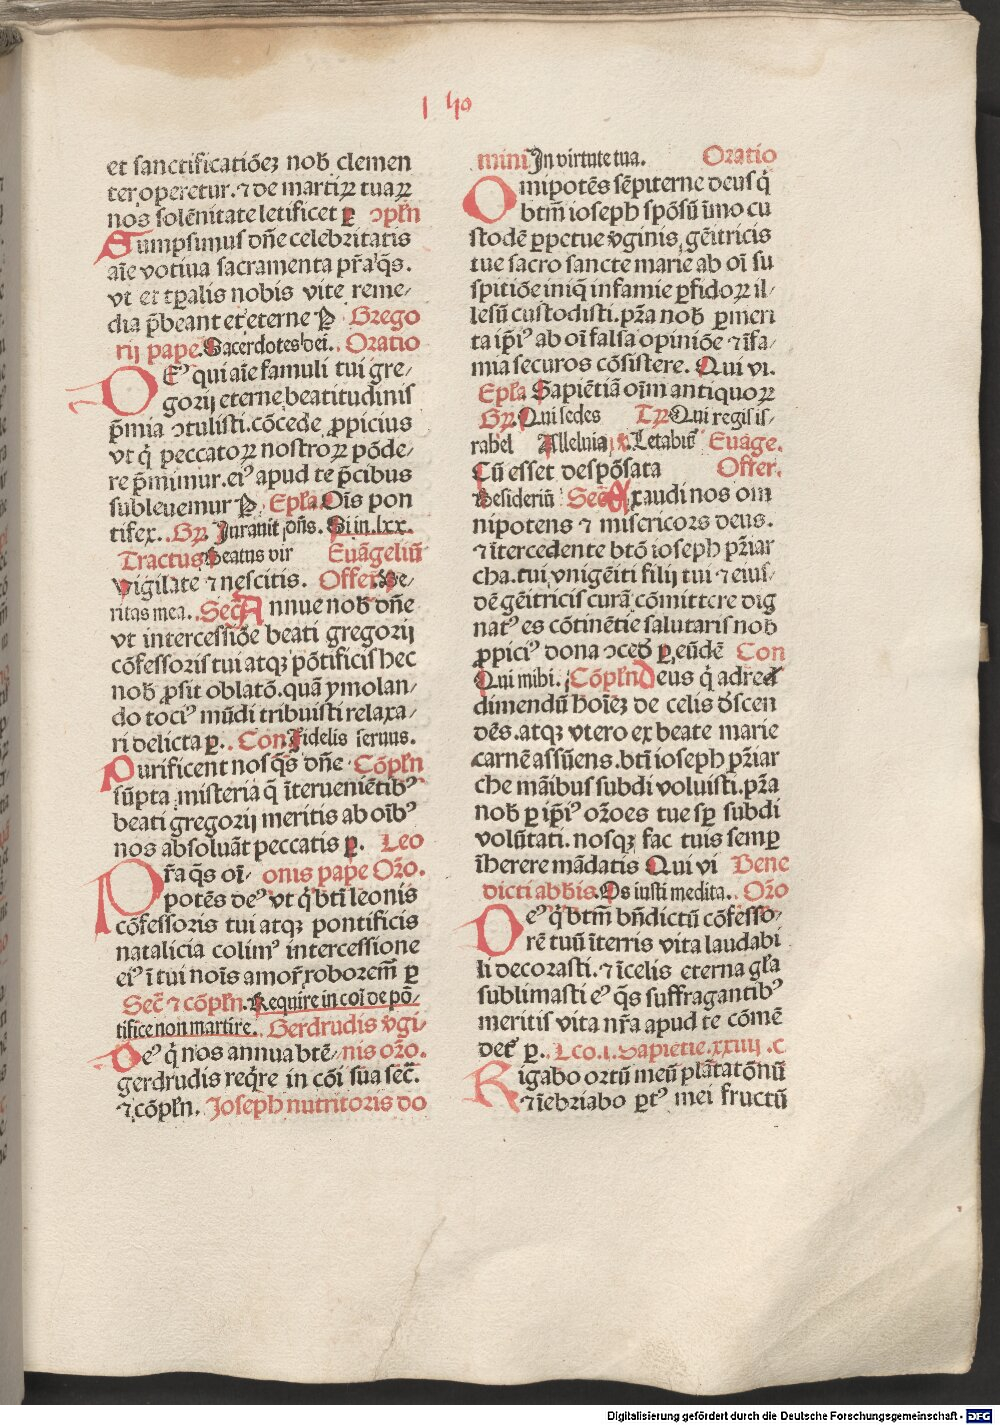 l 40
et sanctificatiōeꝫ nob̄ clemen
ter operetur. ⁊ de martiꝝ tuaꝝ
nos solēnitate letificet ꝑ ↄpl̄n
Sumpsimus dn̄e celebritatis
aīe votiua sacramenta pr̄a q̄s.
vt et tꝑalis nobis vite reme⸗
dia p̄beant et eterne P Grego
rij pape. Sacerdotes dei. Oratio
Deꝰ qui aīe famuli tui gre⸗
gorij eterne beatitudinis
p̄mia ↄtulisti. cōcede ꝓpicius
vt q̇ peccatoꝝ nostroꝝ pōde⸗
re p̄mimur. eiꝰ apud te p̄cibus
subleuemur P Epl̄a Oīs pon
tifex. Gꝝ. Jurauit dn̄s. Si in. lxx.
Tractus Beatus vir Euāgeliū
vigilate ⁊ nescitis. Offer. Ve⸗
ritas mea. Sec̄ Annue nob̄ dn̄e
vt intercessiōe beati gregorij
cōfessoris tui atqꝫ pōtificis hec
nob̄ ꝓsit oblatō. quā ymolan⸗
do tociꝰ mūdi tribuisti relaxa⸗
ri delicta ꝑ. Con Fidelis seruus.
Purificent nos q̄s dn̄e Cōpl̄n
sūpta misteria q̄ īterueniētibꝰ
beati gregorij meritis ab oībꝰ
nos absoluāt peccatis ꝑ. Leo
Pr̄a q̄s oī⸗ onis pape Or̄o.
potēs deꝰ vt q̇ btī leonis
cōfessoris tui atqꝫ pontificis
natalicia colimꝰ intercessione
eiꝰ ī tui noīs amor̄ roborem̄ ꝑ
Sec̄ ⁊ cōpl̄n. Require in coī de pō⸗
tifice non martire. Gerdrudis v̄gi⸗
Deꝰ q̇ nos annua btē⸗ nis or̄o.
gerdrudis req̇re in cōi sua sec̄.
⁊ cōpl̄n. Joseph nutritoris do
mini Jn virtute tua. Oratio
Omipotēs sēpiterne deus q̇
btm̄ ioseph spōsū īmo cu
stodē ꝑpetue v̄ginis gēitricis
tue sacro sancte marie ab oī su
spitiōe iniq̄ infamie ꝑfidoꝝ il⸗
lesū custodisti. pr̄a nob̄ ꝓmeri
ta ip̄iꝰ ab oī falsa opiniōe ⁊ īfa⸗
mia securos cōsistere. Qui vi.
Epl̄a Sapiētiā oīm antiquoꝝ
Gꝝ. Qui sedes Tꝝ Qui regis is⸗
rabel Alleluia ℣. Letabit̄ Euāge.
Cū esset despōsata Offer.
Desideriū Sec̄ Exaudi nos om
nipotens ⁊ misericors deus.
⁊ ītercedente btō ioseph pr̄iar
cha. tui vnigēiti filij tui ⁊ eius⸗
dē gēitricis curā cōmittere dig
natꝰ es cōtinētie salutaris nob̄
ꝓpiciꝰ dona ↄced̄ ꝑ eūdē Con
Qui mibi. Cōpl̄n Deus q̇ ad red
dimendū hoīeꝫ de celis d̄scen
dēs. atqꝫ vtero ex beate marie
carnē assūens. btī ioseph pr̄iar
che māibus subdi voluisti. pr̄a
nob̄ ꝑ ip̄iꝰ or̄oes tue sꝑ subdi
volūtati. nosqꝫ fac tuis semꝑ
īherere mādatis Qui vi Bene
dicti abbis. Os iusti medita. Or̄o
Deꝰ q̇ btm̄ bn̄dictū cōfesso⸗
rē tuū īterris vita laudabi
li decorasti. ⁊ īcelis eterna gl̄a
sublimasti eꝰ q̄s suffragantibꝰ
meritis vita nr̄a apud te cōmē
detꝰ ꝑ. Lco. l. Sapietie. xxiiij .c
Rigabo ortū meū plātatōnū
⁊ īebriabo ꝑtꝰ mei fructū
Digitalisierung gefördert durch die Deutsche Forschungsgemeinschaft - DFG